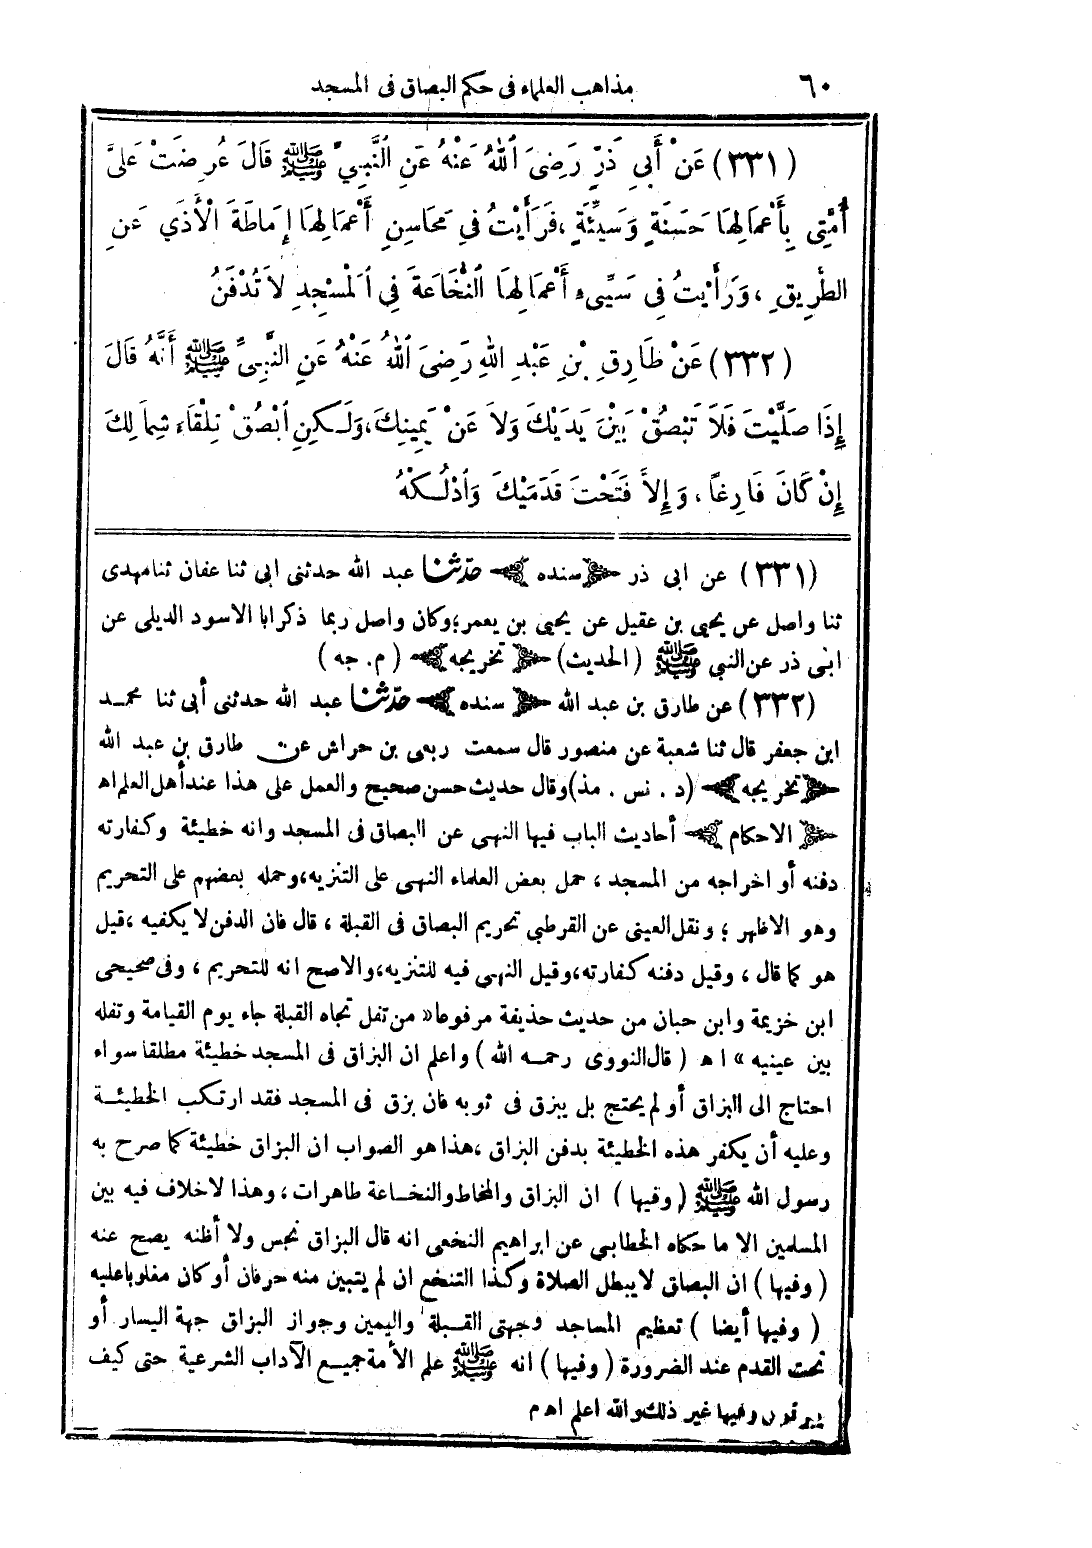 ٦٠ مذاهب العلماء فى حكم البصاق فى المسجد
(٣٣١) عَنْ أَبِي ذَرٍّ رَضِيَ اللهُ عَنْهُ عَنِ النَّبِيِّ ﷺ قَالَ عُرِضَتْ عَلَيَّ
أُمَّتِي بِأَعْمَالِهَا حَسَنَةٍ وَسَيِّئَةٍ، فَرَأَيْتُ فِي مَحَاسِنِ أَعْمَالِهَا إِمَاطَةَ الْأَذَي عَنِ
الطَّرِيقِ، وَرَأَيْتُ فِي سَيِّيءِ أَعْمَالِهَا النُّخَاعَةَ فِي الْمَسْجِدِ لاَ تُدْفَنُ
(٣٣٢) عَنْ طَارِقِ بْنِ عَبْدِ اللهِ رَضِيَ اللهُ عَنْهُ عَنِ النَّبِيِّ ﷺ أَنَّهُ قَالَ
إِذَا صَلَّيْتَ فَلاَ تَبْصُقْ بَيْنَ يَدَيْكَ وَلاَ عَنْ يَمِينِكَ، وَلَكِنِ ابْصُقْ تِلْقَاءَ شِمَالِكَ
إِنْ كَانَ فَارِغًا، وَإِلاَّ فَتَحْتَ قَدَمَيْكَ وَادْلُكْهُ
(٣٣١) عن ابى ذر ﴿سنده﴾ حدّثنا عبد الله حدثنى ابى ثنا عفان ثنا مهدى
ثنا واصل عن يحيى بن عقيل عن يحيى بن يعمر؛ وكان واصل ربما ذكر ابا الاسود الديلى عن
ابى ذر عن النبى ﷺ (الحديث) ﴿تخريجه﴾ (م. جه)
(٣٣٢) عن طارق بن عبد الله ﴿سنده﴾ حدّثنا عبد الله حدثنى أبى ثنا محمد
ابن جعفر قال ثنا شعبة عن منصور قال سمعت ربعى بن حراش عن طارق بن عبد الله
﴿تخريجه﴾ (د . نس . مذ) وقال حديث حسن صحيح والعمل على هذا عند أهل العلم اهـ
﴿الاحكام﴾ أحاديث الباب فيها النهى عن البصاق فى المسجد وانه خطيئة وكفارته
دفنه أو اخراجه من المسجد، حمل بعض العلماء النهى على التنزيه، وحمله بعضهم على التحريم
وهو الاظهر؛ ونقل العينى عن القرطبى تحريم البصاق فى القبلة، قال فان الدفن لا يكفيه، قيل
هو كما قال، وقيل دفنه كفارته، وقيل النهى فيه للتنزيه، والاصح انه للتحريم، وفى صحيحى
ابن خزيمة وابن حبان من حديث حذيفة مرفوعا «من تفل تجاه القبلة جاء يوم القيامة وتفله
بين عينيه» اهـ (قال النووى رحمه الله) واعلم ان البزاق فى المسجد خطيئة مطلقا سواء
احتاج الى البزاق أو لم يحتج بل يبزق فى ثوبه فان بزق فى المسجد فقد ارتكب الخطيئة
وعليه أن يكفر هذه الخطيئة بدفن البزاق، هذا هو الصواب ان البزاق خطيئة كما صرح به
رسول الله ﷺ (وفيها) ان البزاق والمخاط والنخاعة طاهرات، وهذا لا خلاف فيه بين
المسلمين الا ما حكاه الخطابى عن ابراهيم النخعى انه قال البزاق نجس ولا أظنه يصح عنه
(وفيها) ان البصاق لا يبطل الصلاة وكذا التنخع ان لم يتبين منه حرفان أو كان مغلوبا عليه
(وفيها أيضا) تعظيم المساجد وجهتى القبلة واليمين وجواز البزاق جهة اليسار أو
تحت القدم عند الضرورة (وفيها) انه ﷺ علم الأمة جميع الآداب الشرعية حتى كيف
يبزقون وفيها غير ذلك والله اعلم اهـ م